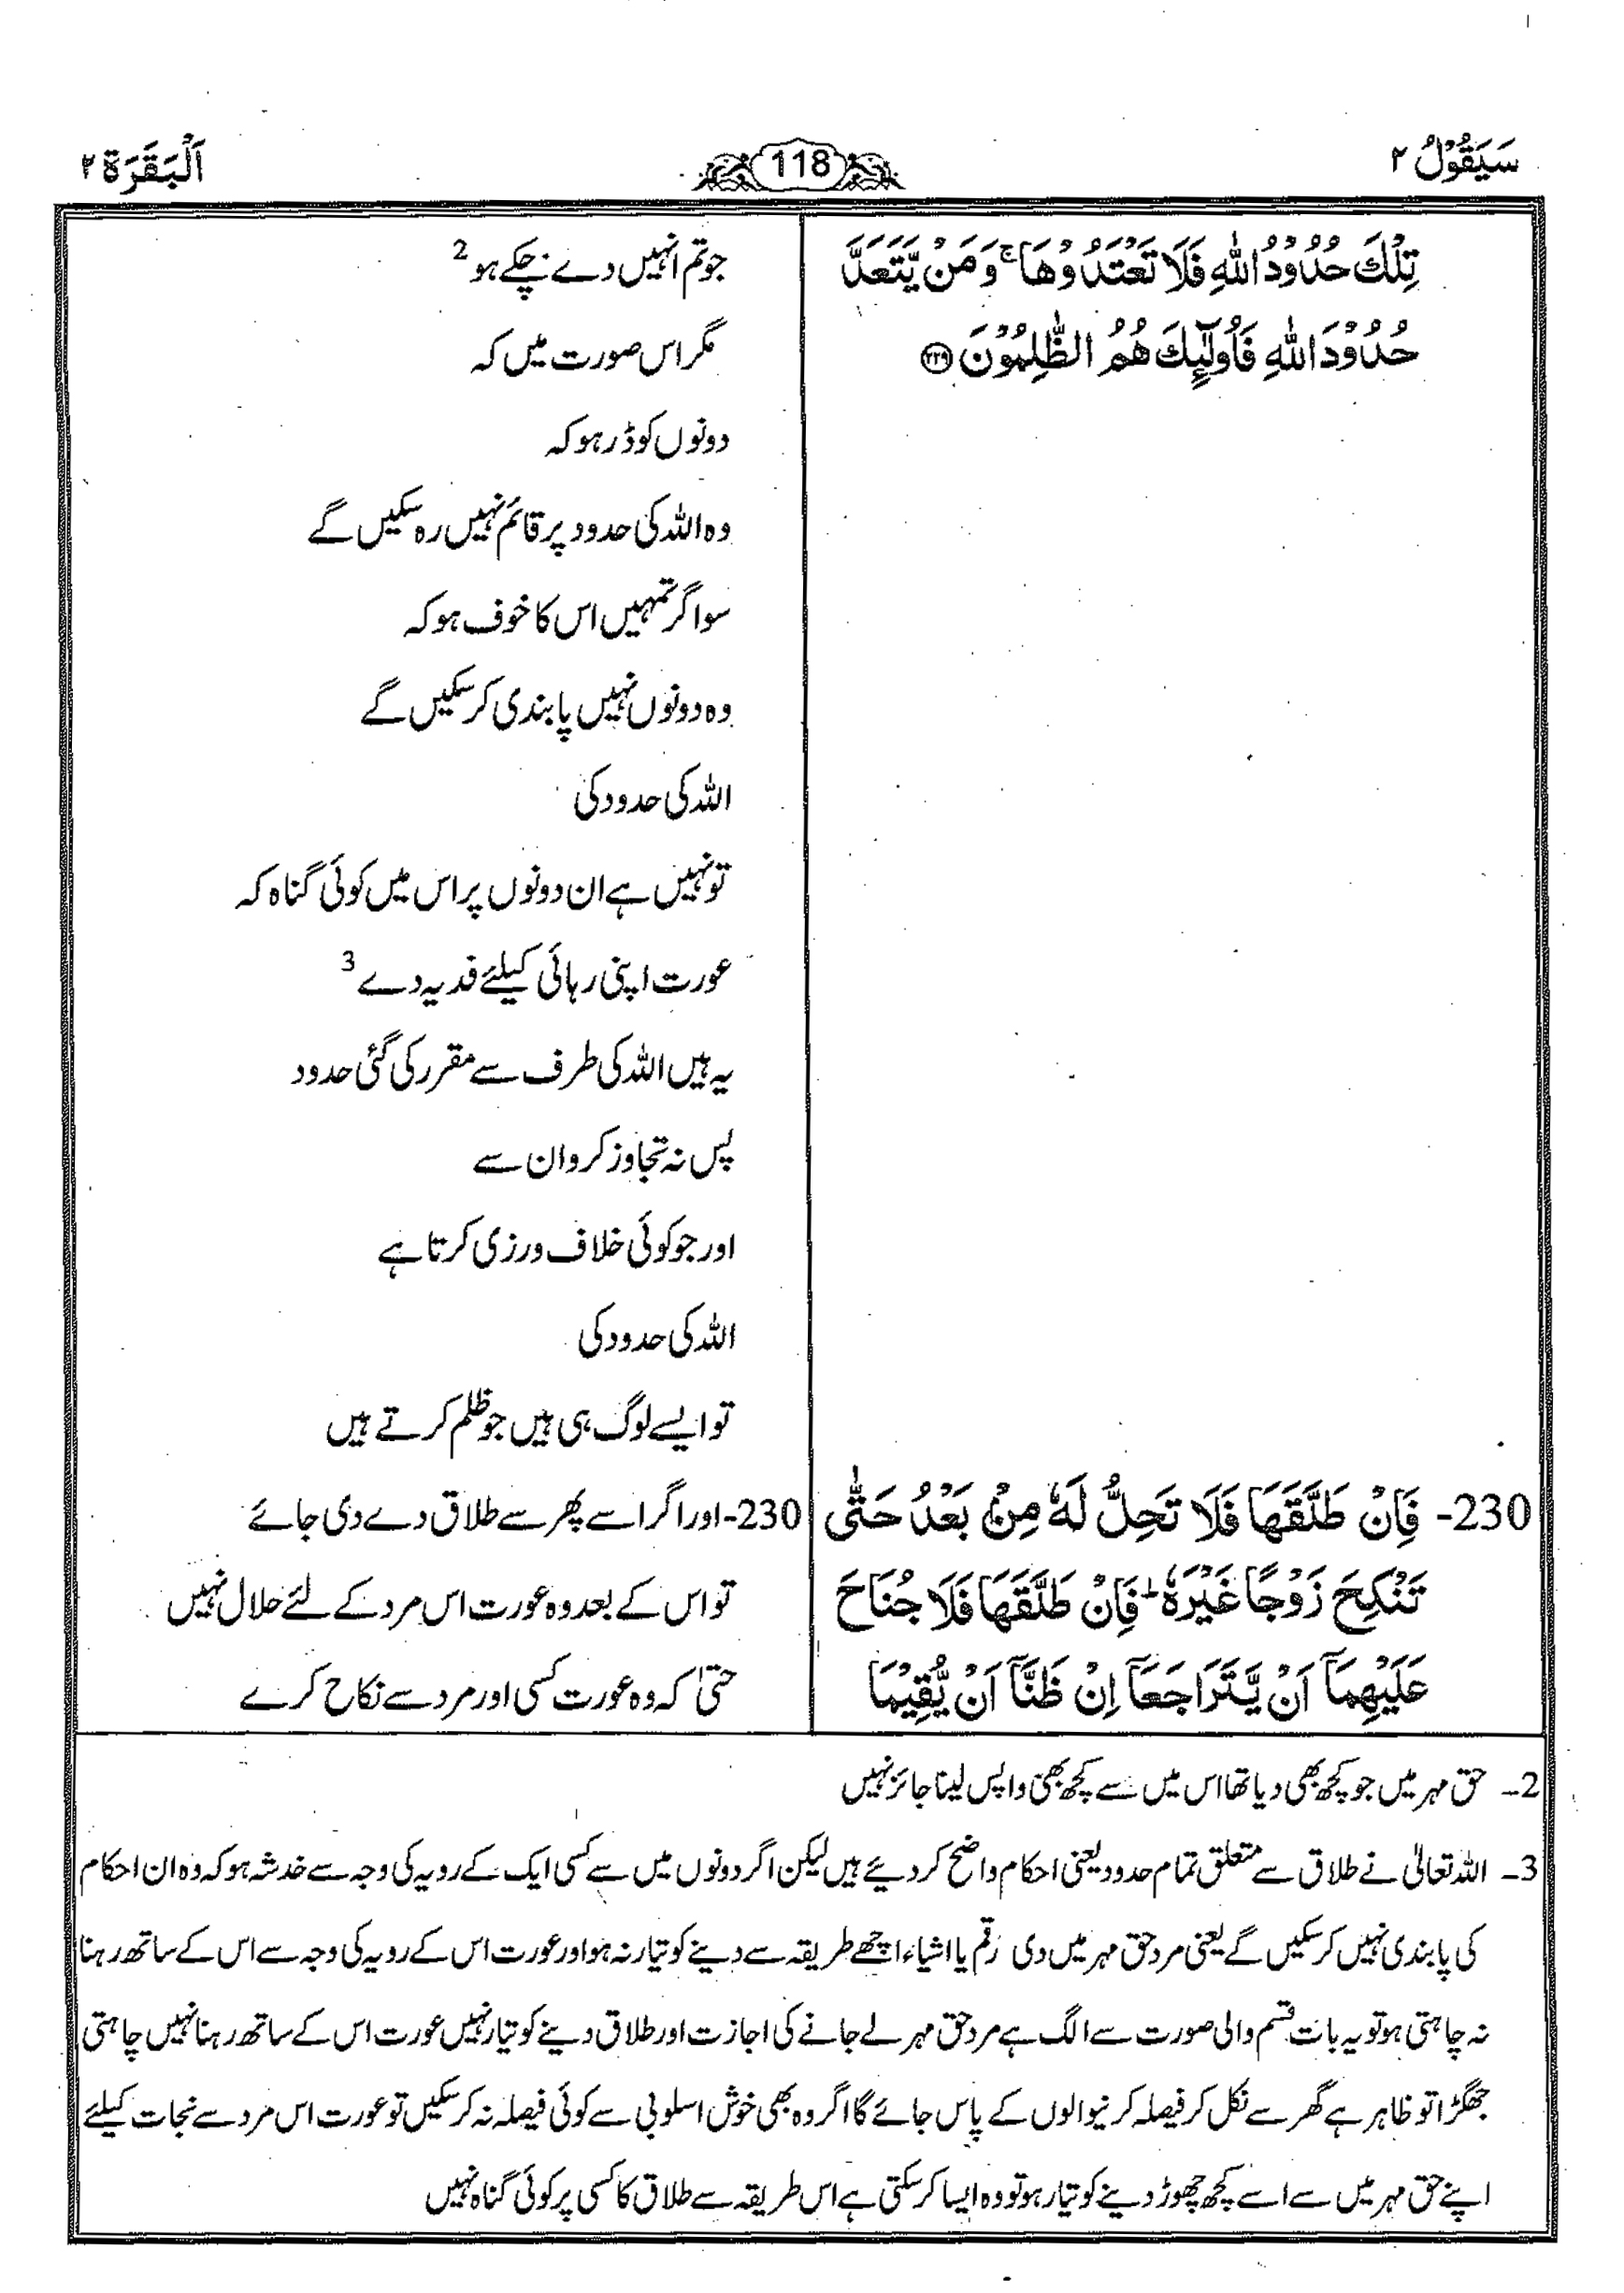 سَيَقُوْلُ ٢
118
اَلْبَقَرَة ٢
تِلْكَ حُدُوْدُ اللّٰهِ فَلَا تَعْتَدُوْهَا ۚ وَمَنْ يَّتَعَدَّ
حُدُوْدَ اللّٰهِ فَاُولٰٓئِكَ هُمُ الظّٰلِمُوْنَ ﴿٢٢٩﴾
230- فَاِنْ طَلَّقَهَا فَلَا تَحِلُّ لَهٗ مِنْۢ بَعْدُ حَتّٰى
تَنْكِحَ زَوْجًا غَيْرَهٗ ؕ فَاِنْ طَلَّقَهَا فَلَا جُنَاحَ
عَلَيْهِمَآ اَنْ يَّتَرَاجَعَآ اِنْ ظَنَّآ اَنْ يُّقِيْمَا
جو تم انہیں دے چکے ہو 2
مگر اس صورت میں کہ
دونوں کو ڈر ہو کہ
وہ اللہ کی حدود پر قائم نہیں رہ سکیں گے
سو اگر تمہیں اس کا خوف ہو کہ
وہ دونوں نہیں پابندی کر سکیں گے
اللہ کی حدود کی
تو نہیں ہے ان دونوں پر اس میں کوئی گناہ کہ
عورت اپنی رہائی کیلئے فدیہ دے 3
یہ ہیں اللہ کی طرف سے مقرر کی گئی حدود
پس نہ تجاوز کرو ان سے
اور جو کوئی خلاف ورزی کرتا ہے
اللہ کی حدود کی
تو ایسے لوگ ہی ہیں جو ظلم کرتے ہیں
230- اور اگر اسے پھر سے طلاق دے دی جائے
تو اس کے بعد وہ عورت اس مرد کے لئے حلال نہیں
حتیٰ کہ وہ عورت کسی اور مرد سے نکاح کرے
2- حق مہر میں جو کچھ بھی دیا تھا اس میں سے کچھ بھی واپس لینا جائز نہیں
3- اللہ تعالیٰ نے طلاق سے متعلق تمام حدود یعنی احکام واضح کر دیئے ہیں لیکن اگر دونوں میں سے کسی ایک کے رویہ کی وجہ سے خدشہ ہو کہ وہ ان احکام
کی پابندی نہیں کر سکیں گے یعنی مرد حق مہر میں دی رقم یا اشیاء اچھے طریقہ سے دینے کو تیار نہ ہو اور عورت اس کے رویہ کی وجہ سے اس کے ساتھ رہنا
نہ چاہتی ہو تو یہ بات قسم والی صورت سے الگ ہے مرد حق مہر لے جانے کی اجازت اور طلاق دینے کو تیار نہیں عورت اس کے ساتھ رہنا نہیں چاہتی
جھگڑا تو ظاہر ہے گھر سے نکل کر فیصلہ کرنیوالوں کے پاس جائے گا اگر وہ بھی خوش اسلوبی سے کوئی فیصلہ نہ کر سکیں تو عورت اس مرد سے نجات کیلئے
اپنے حق مہر میں سے اسے کچھ چھوڑ دینے کو تیار ہو تو وہ ایسا کر سکتی ہے اس طریقہ سے طلاق کا کسی پر کوئی گناہ نہیں